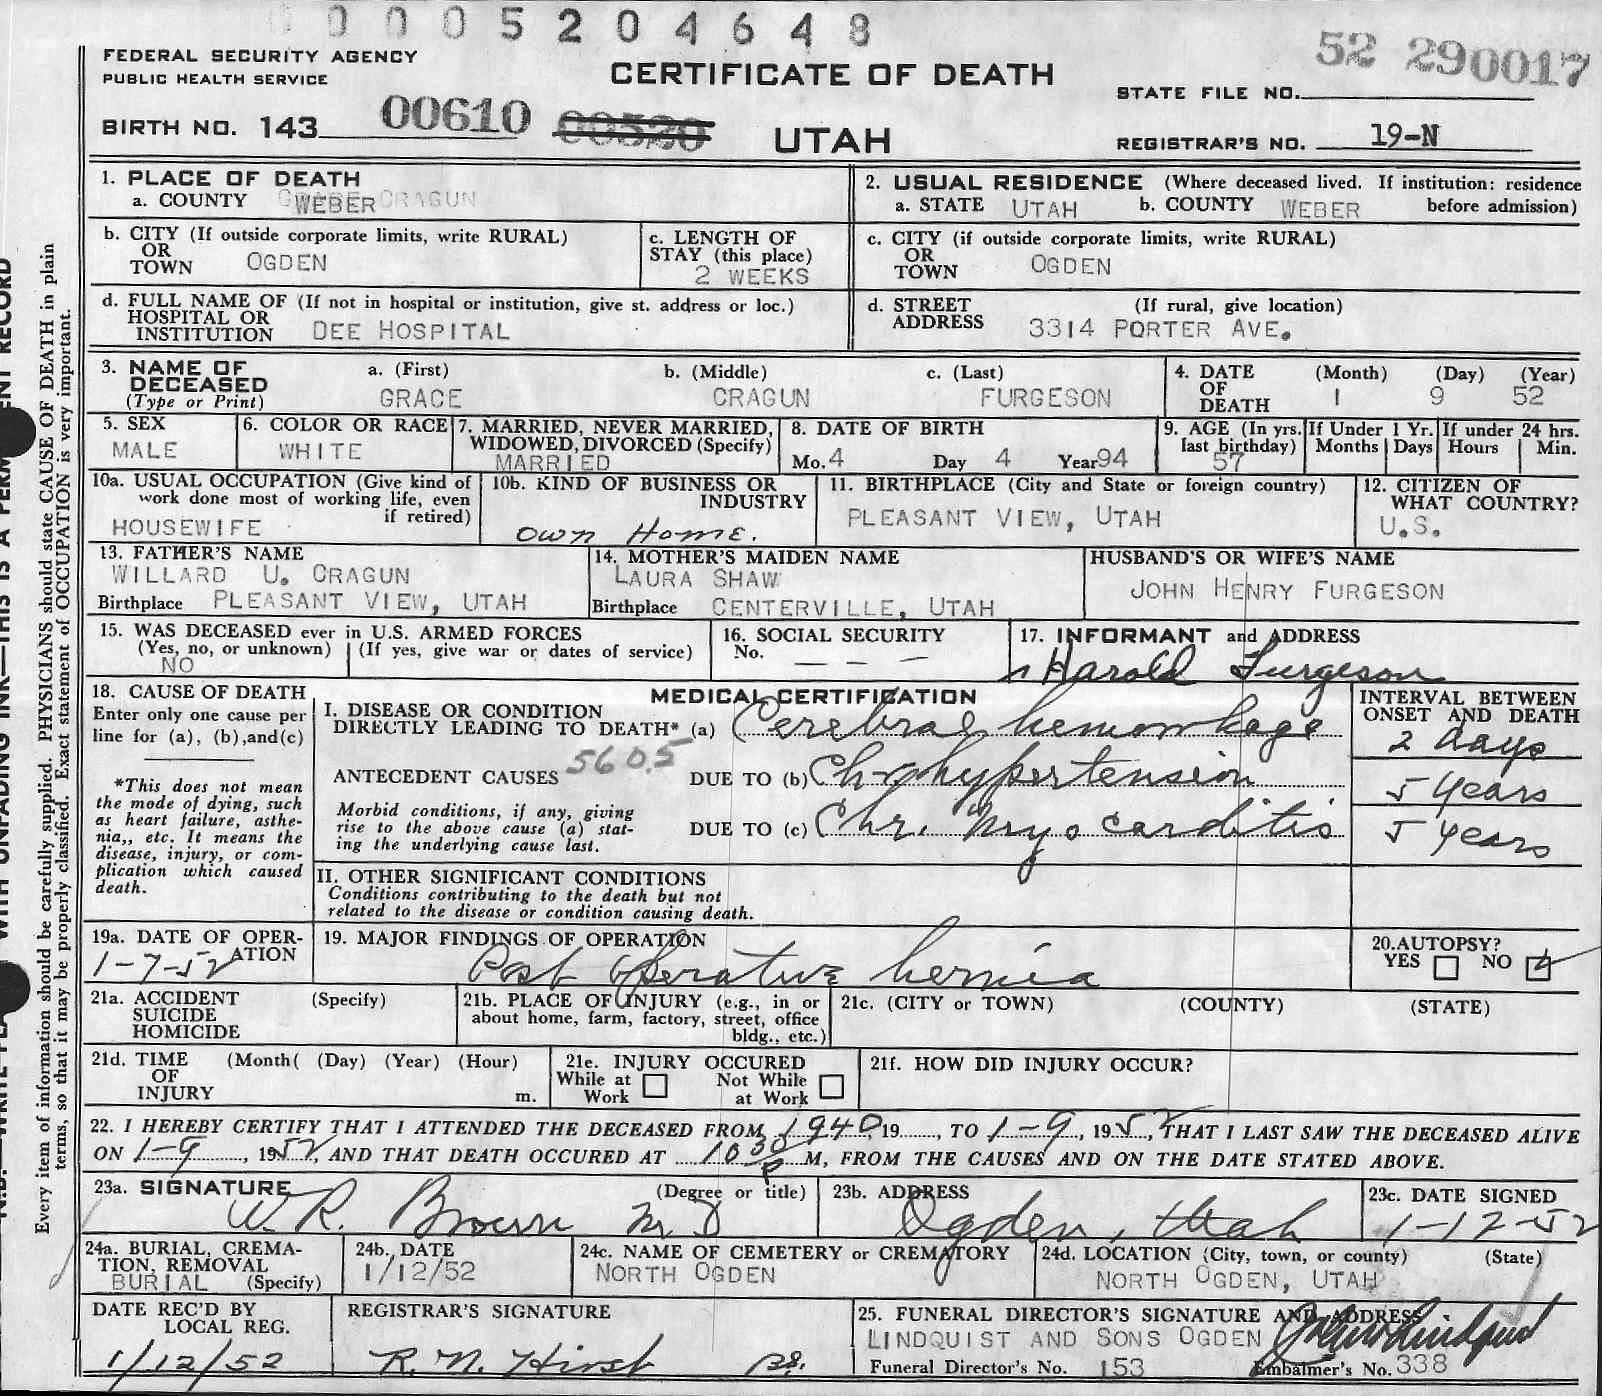 0 0 0 5 2 0 4 6 4 8
52 290017
FEDERAL SECURITY AGENCY
PUBLIC HEALTH SERVICE
CERTIFICATE OF DEATH
STATE FILE NO.
BIRTH NO. 143 00610 00520 UTAH
REGISTRAR'S NO. 19-N
1. PLACE OF DEATH
a. COUNTY WEBER CRAGUN
2. USUAL RESIDENCE (Where deceased lived. If institution: residence before admission)
a. STATE UTAH b. COUNTY WEBER
b. CITY (If outside corporate limits, write RURAL)
OR
TOWN OGDEN
c. LENGTH OF
STAY (this place)
2 WEEKS
c. CITY (if outside corporate limits, write RURAL)
OR
TOWN OGDEN
d. FULL NAME OF (If not in hospital or institution, give st. address or loc.)
HOSPITAL OR
INSTITUTION DEE HOSPITAL
d. STREET (If rural, give location)
ADDRESS 3314 PORTER AVE.
3. NAME OF
DECEASED
(Type or Print)
a. (First) b. (Middle) c. (Last)
GRACE CRAGUN FURGESON
4. DATE
OF
DEATH
(Month) (Day) (Year)
1 9 52
5. SEX
MALE
6. COLOR OR RACE
WHITE
7. MARRIED, NEVER MARRIED,
WIDOWED, DIVORCED (Specify)
MARRIED
8. DATE OF BIRTH
Mo. 4 Day 4 Year 94
9. AGE (In yrs.
last birthday)
57
If Under 1 Yr.
Months Days
If under 24 hrs.
Hours Min.
10a. USUAL OCCUPATION (Give kind of
work done most of working life, even
if retired)
HOUSEWIFE
10b. KIND OF BUSINESS OR
INDUSTRY
Own Home.
11. BIRTHPLACE (City and State or foreign country)
PLEASANT VIEW, UTAH
12. CITIZEN OF
WHAT COUNTRY?
U.S.
13. FATHER'S NAME
WILLARD U. CRAGUN
Birthplace PLEASANT VIEW, UTAH
14. MOTHER'S MAIDEN NAME
LAURA SHAW
Birthplace CENTERVILLE, UTAH
HUSBAND'S OR WIFE'S NAME
JOHN HENRY FURGESON
15. WAS DECEASED ever in U.S. ARMED FORCES
(Yes, no, or unknown) (If yes, give war or dates of service)
NO
16. SOCIAL SECURITY
No. — — —
17. INFORMANT and ADDRESS
Harold Furgeson
18. CAUSE OF DEATH
Enter only one cause per
line for (a), (b), and (c)
*This does not mean
the mode of dying, such
as heart failure, asthe-
nia,, etc. It means the
disease, injury, or com-
plication which caused
death.
MEDICAL CERTIFICATION
I. DISEASE OR CONDITION
DIRECTLY LEADING TO DEATH* (a) Cerebral hemorrhage
ANTECEDENT CAUSES 560.5 DUE TO (b) Ch hypertension
Morbid conditions, if any, giving
rise to the above cause (a) stat-
ing the underlying cause last.
DUE TO (c) Chr. Myocarditis
INTERVAL BETWEEN
ONSET AND DEATH
2 days
5 years
5 years
II. OTHER SIGNIFICANT CONDITIONS
Conditions contributing to the death but not
related to the disease or condition causing death.
19a. DATE OF OPER-
ATION
1-7-52
19. MAJOR FINDINGS OF OPERATION
Post operative hernia
20. AUTOPSY?
YES NO
21a. ACCIDENT (Specify)
SUICIDE
HOMICIDE
21b. PLACE OF INJURY (e.g., in or
about home, farm, factory, street, office
bldg., etc.)
21c. (CITY or TOWN) (COUNTY) (STATE)
21d. TIME (Month( (Day) (Year) (Hour)
OF
INJURY m.
21e. INJURY OCCURED
While at Work Not While at Work
21f. HOW DID INJURY OCCUR?
22. I HEREBY CERTIFY THAT I ATTENDED THE DECEASED FROM 1940, 19......, TO 1-9, 1952, THAT I LAST SAW THE DECEASED ALIVE
ON 1-9, 1952, AND THAT DEATH OCCURED AT 10 30 P M, FROM THE CAUSES AND ON THE DATE STATED ABOVE.
23a. SIGNATURE (Degree or title)
W. R. Brown M D
23b. ADDRESS
Ogden, Utah
23c. DATE SIGNED
1-12-52
24a. BURIAL, CREMA-
TION, REMOVAL
BURIAL (Specify)
24b. DATE
1/12/52
24c. NAME OF CEMETERY or CREMATORY
NORTH OGDEN
24d. LOCATION (City, town, or county) (State)
NORTH OGDEN, UTAH
DATE REC'D BY
LOCAL REG.
1/12/52
REGISTRAR'S SIGNATURE
R. N. Hirst
25. FUNERAL DIRECTOR'S SIGNATURE AND ADDRESS
LINDQUIST AND SONS OGDEN
Funeral Director's No. 153 Embalmer's No. 338
Every item of information should be carefully supplied. PHYSICIANS should state CAUSE OF DEATH in plain
terms, so that it may be properly classified. Exact statement of OCCUPATION is very important.